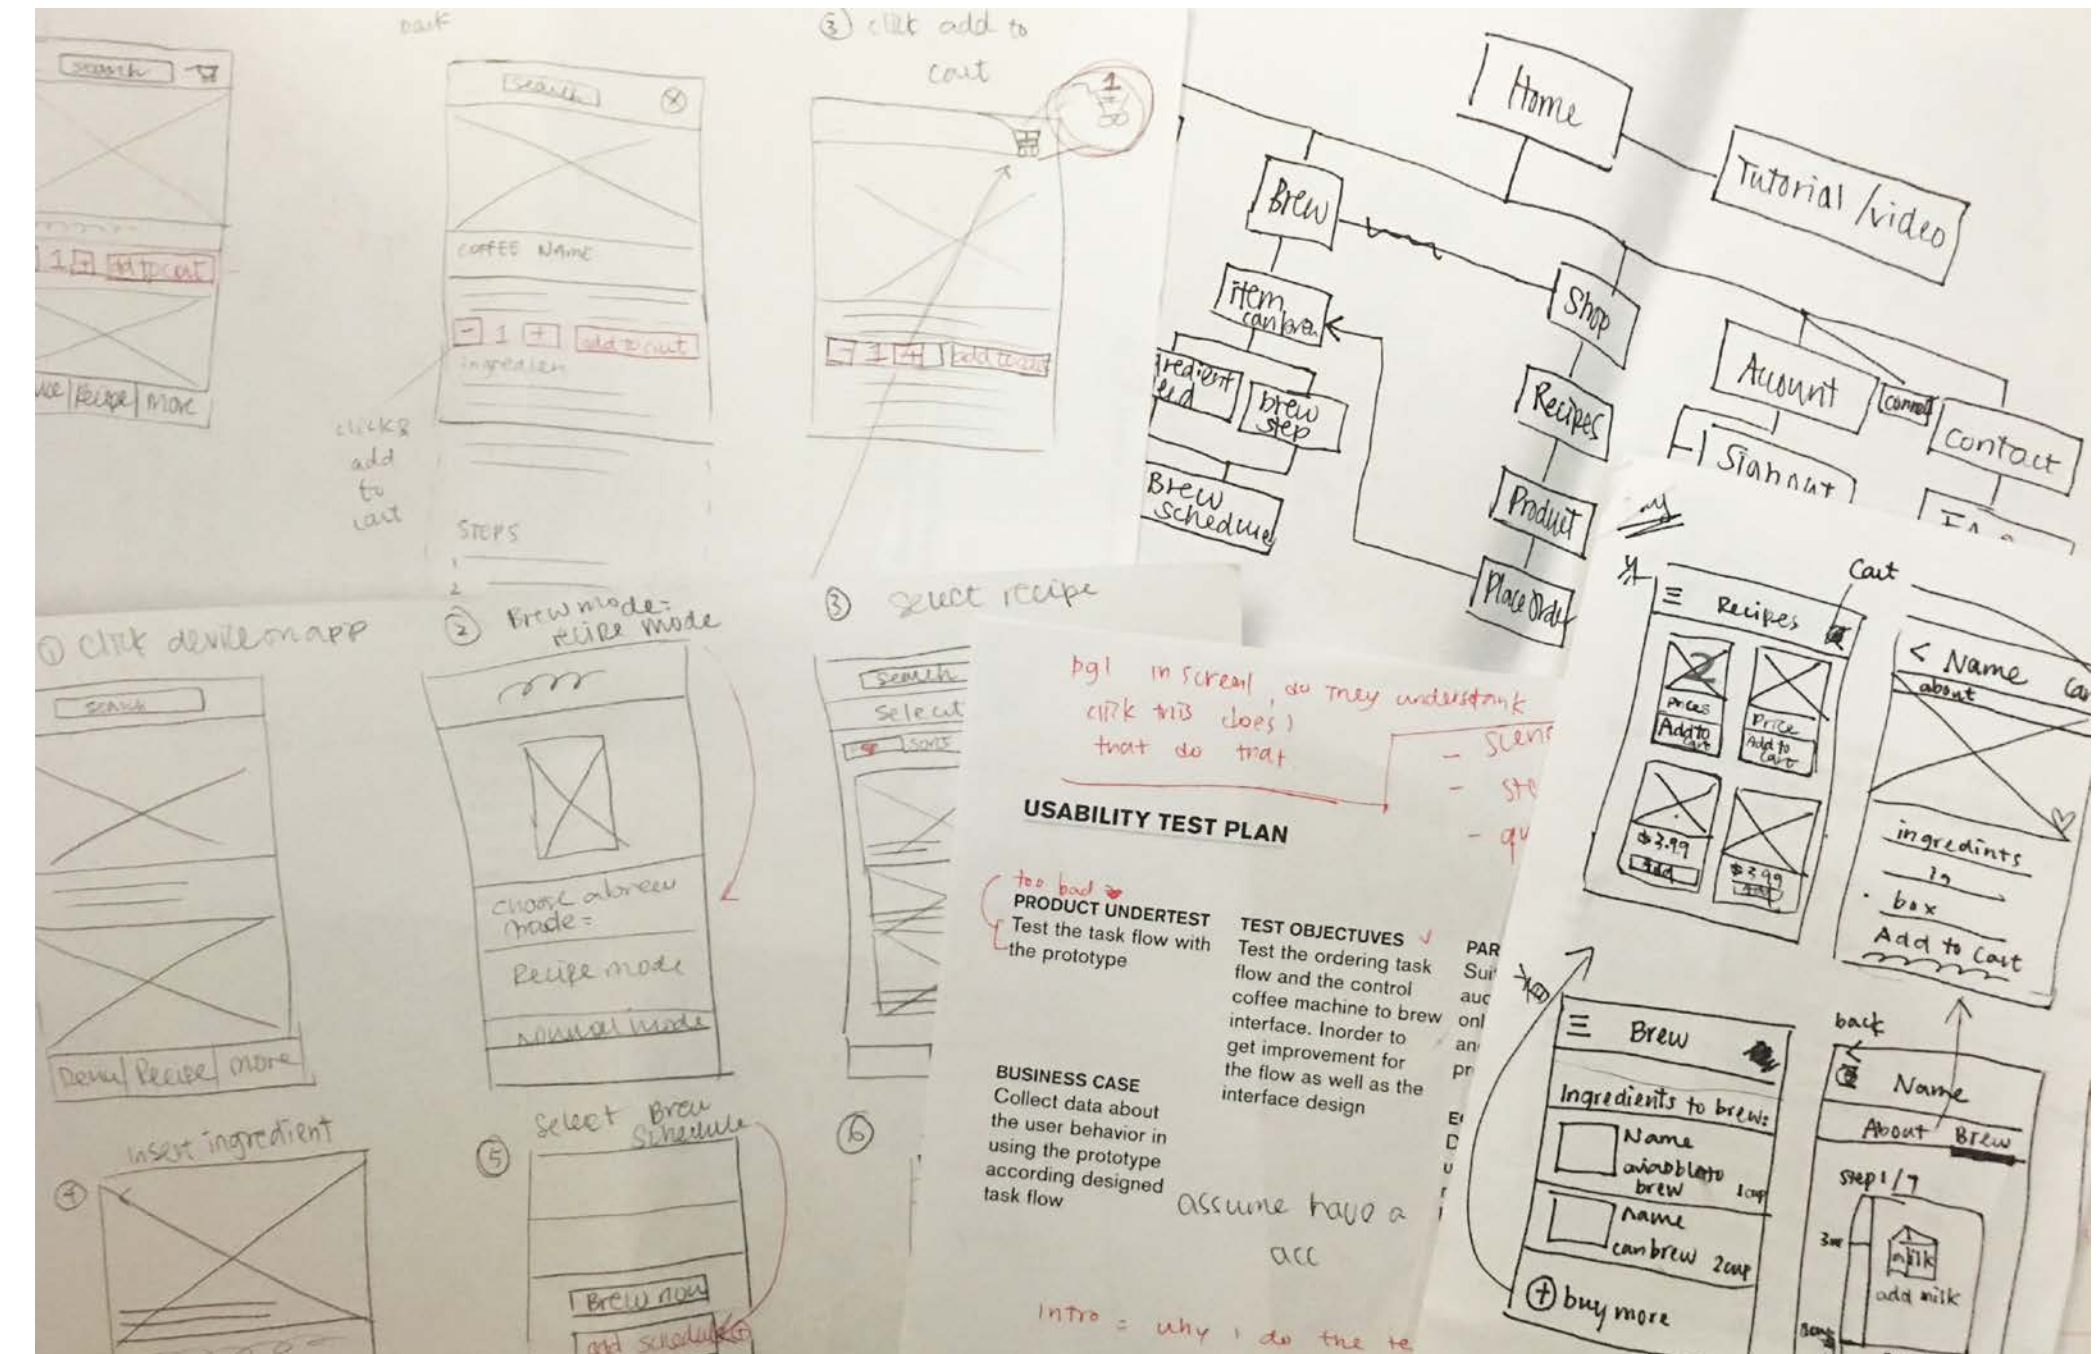 search
1 + add to cart
Recipe | more
search
X
COFFEE NAME
- 1 + add to cart
ingredien
clicks
add
to
cart
STEPS
1
2
③ click add to
cart
1
- 1 + add to cart
Home
Tutorial /video
Brew
item
can brew
redient
brew
step
Brew
schedule
Shop
Recipes
Product
Place Order
Account
connect
contact
Sign out
① click device on app
search
Recipe | more
② Brew mode:
recipe mode
choose a brew
mode:
Recipe mode
normal mode
③ select recipe
search
select
sort
④
insert ingredient
⑤
select Brew
schedule
Brew now
add schedule +
⑥
in screen, do they understand
click this does
that do that
USABILITY TEST PLAN
too bad
PRODUCT UNDERTEST
Test the task flow with
the prototype
BUSINESS CASE
Collect data about
the user behavior in
using the prototype
according designed
task flow
TEST OBJECTUVES
Test the ordering task
flow and the control
coffee machine to brew
interface. Inorder to
get improvement for
the flow as well as the
interface design
PAR
Sui
auc
onl
an
pr
assume have a
acc
intro = why i do the te
Cart
Recipes
2
prices
Add to
cart
Price
Add to
Cart
$3.99
Add
$3.99
Add
< Name
about
ingredints
box
Add to Cart
Brew
Ingredients to brew:
Name
brew 1cup
name
can brew 2cup
+ buy more
back
<
Name
About Brew
step 1/7
milk
add milk